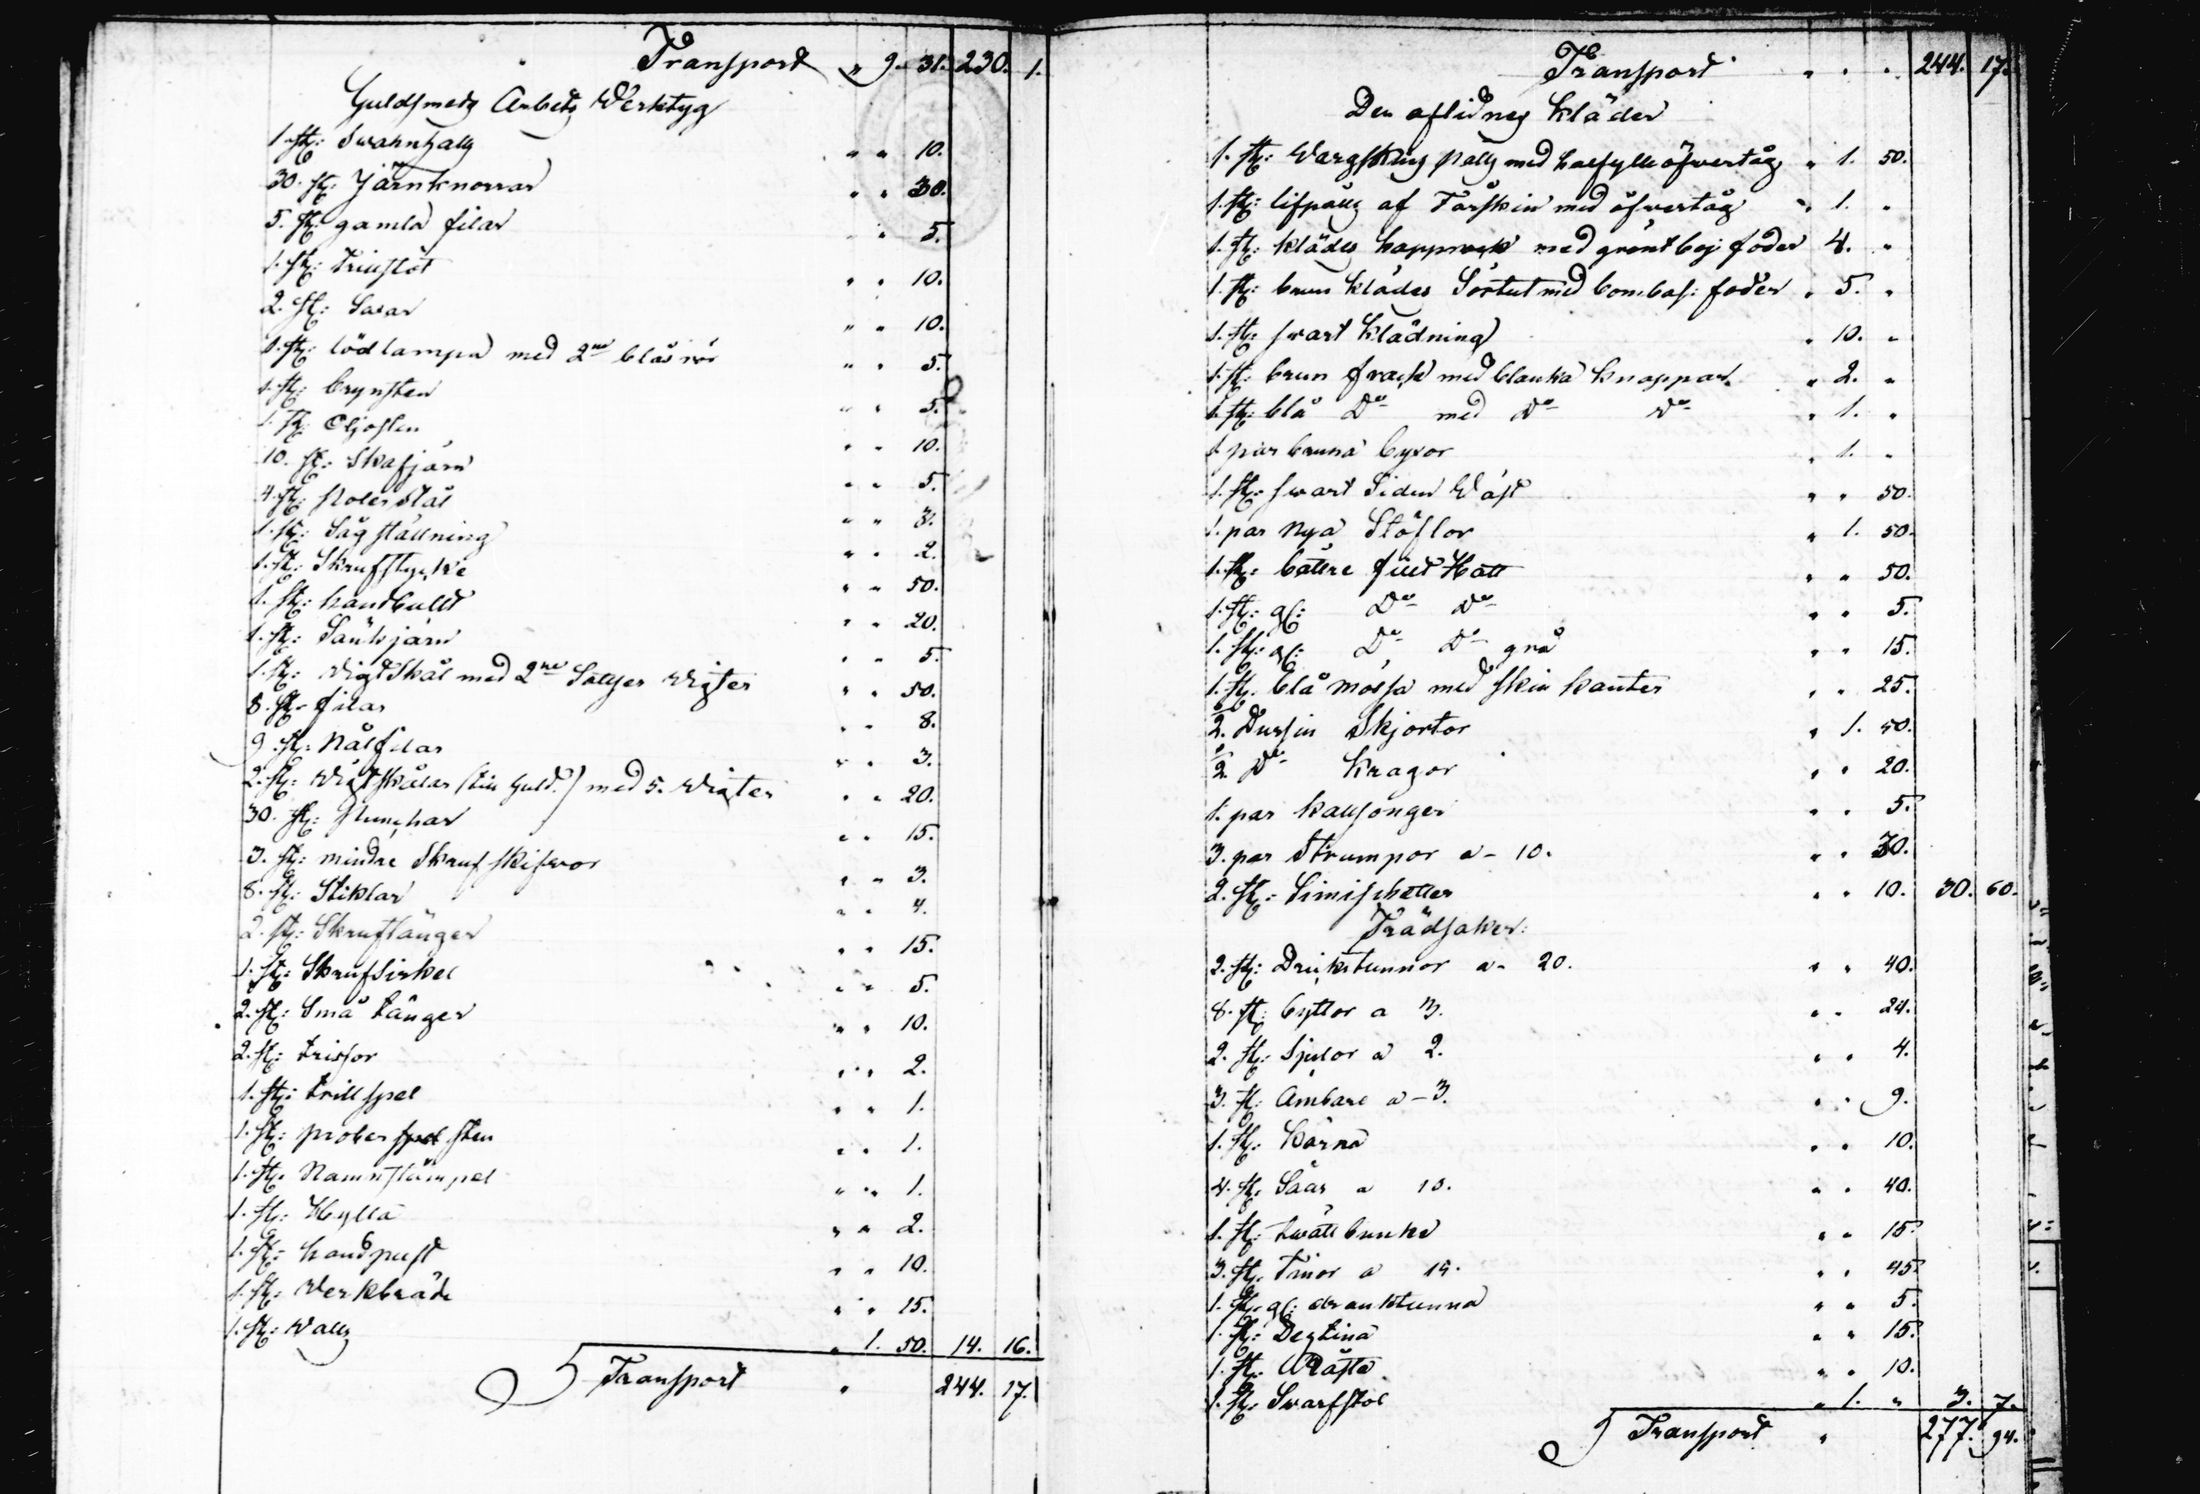 Transport " 9. 31. 230. 1.
Guldsmeds Arbets Verktyg
1. st: Swahnhals " " 10.
30. st: Järnknorrar " " 30.
5. st: gamla filar " 5.
1. st: " " 10.
2. st: Saxar " " 10.
1. st: lödlampa med 2ne blåsrör " " 5.
1. st: brynsten " " 5.
1. st: Oljosten " " 10.
10. st: Skafjärn " " 5.
4. st: Polerstål " " 3.
1. st: Sågställning " " 2.
1. st: Skrufstycke " " 50.
1. st: handbult " " 20.
1. st: Sänkjärn " " 5.
1. st: Vigtskål med 2ne Satser vigter " " 50.
8. st: filar " " 8.
9. st: Nålfilar " " 3.
2. st: Vigtskålar (till Guld.) med 5. Vigter " " 20.
30. st: " " 15.
3. st: mindre Skruf skifvor " " 3.
8. st: Stiklar " " 4.
2. st: Skruftänger " " 15.
1. st: Skrufsirkel " " 5.
2. st: Små tänger " " 10.
2. st: trissor " " 2.
1. st: trillspel " " 1.
1. st: prober sten " " 1.
1. st: Namnstämpel " " 1.
1. st: Hylla " " 2.
1. st: handpust " " 10.
1. st: Verkbräde " " 15.
1. st: Vals " 1. 50. 14. 16.
Transport " 244. 17.
Transport " " " 244. 17.
Den aflidnes Kläder
1. st: Vargskins päls med halfylle öfvertåg " 1. 50.
1. st: lifpäls af Fårskin med öfvertåg " 1. "
1. st: Klädes kapprock med grönt boj foder 4. "
1. st: brun Klädes Sörtut med bombas: foder " 5. "
1. st: swart Klädning " 10. "
1. st: brun frack med blanka knappar. " 2. "
1. st: blå Do med Do Do " 1. "
1 par bruna byxor " 1. "
1. st: swart Siden Väst " " 50.
1. par Nya Stöflor " 1. 50.
1. st: bättre filt Hatt " " 50.
1. st: gl: Do Do " " 5.
1. st: gl: Do Do grå " " 15.
1. st. blå mössa med skin kanter " " 25.
1/2. Dussin Skjortor " 1. 50.
1/2. Do Kragor " " 20.
1. par kallsonger " " 5.
3. par Strumpor a - 10. " " 30.
2. st: Simischetter " " 10. 30. 60.
Trädsaker:
2. st: Drickstunnor a - 20. " " 40.
8. st: byttor a 3. " " 24.
2. st: Spilor a 2. " " 4.
3. st: Ämbare a - 3. " " 9.
1. st: Kärna " " 10.
4. st. Såar a 10. " " 40.
1. st: twättbunke " " 15.
3. st. Tinor a 15. " " 45.
1. st. gl: dranktunna " " 5.
1. st: Degtina " " 15.
1. st. " " 10.
1. st: Svarfstol " 1. " 3. 7.
Transport " 277. 94.